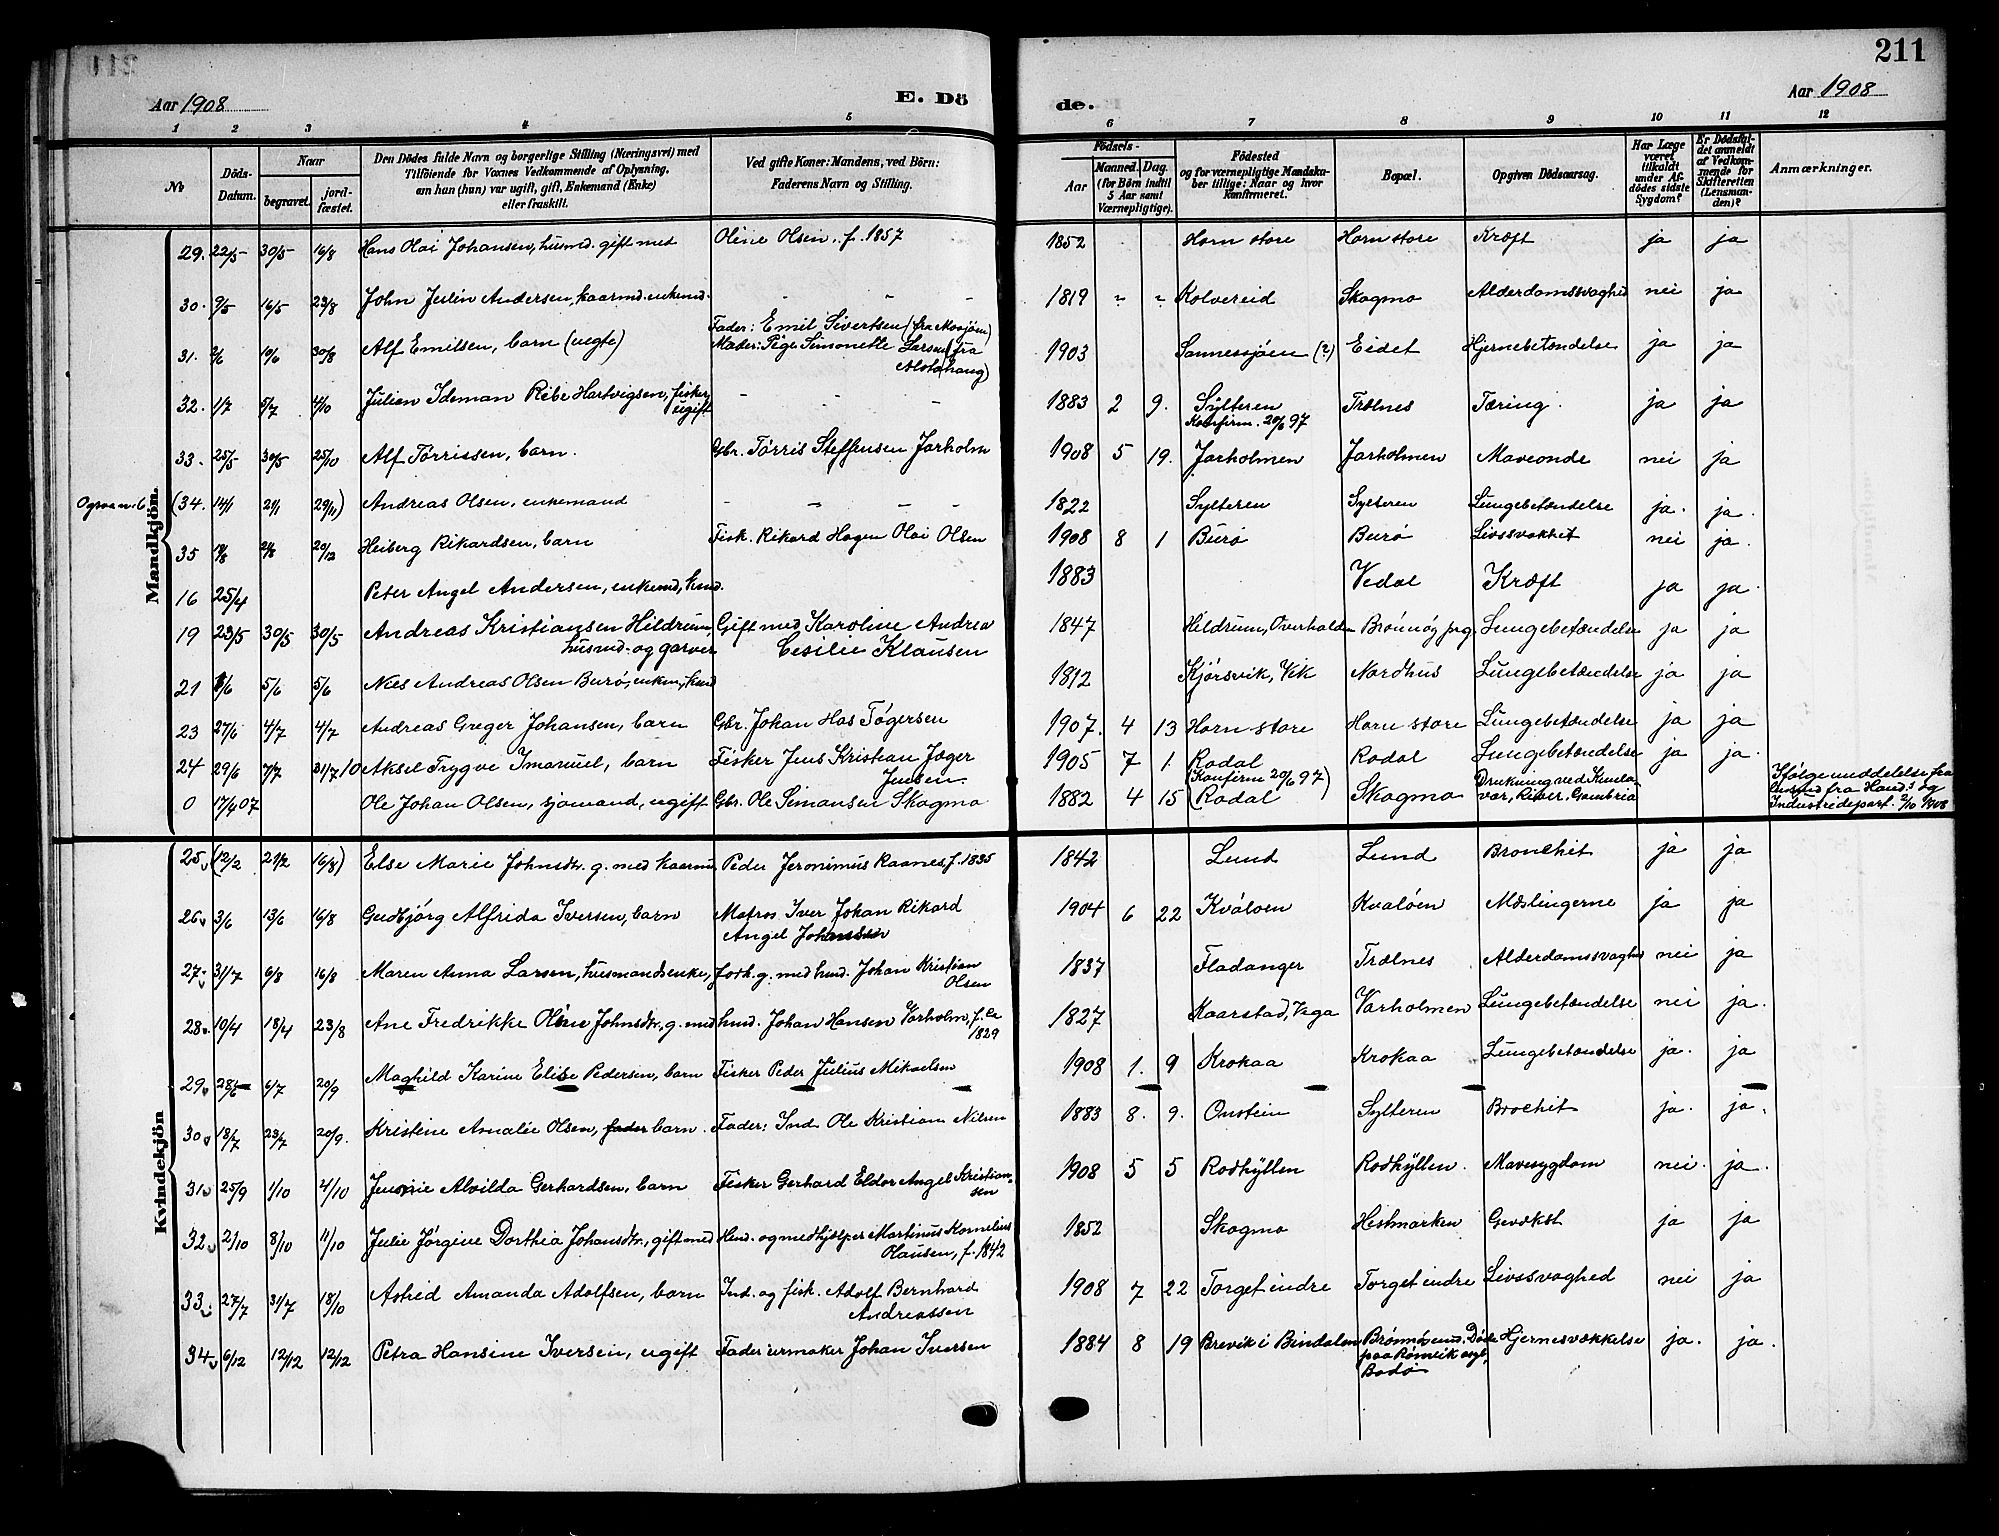 211
Aar 1908
E. Dö
de.
Aar 1908
1 2 3 4 5 6 7 8 9 10 11 12
No
Döds-
Datum.
Naar
begravet.
jord-
fæstet.
Den Dödes fulde Navn og borgerlige Stilling (Næringsvei) med
Tilföiende for Voxnes Vedkommende af Oplysning.
om han (hun) var ugift, gift, Enkemand (Enke)
eller fraskilt.
Ved gifte Koner: Mandens, ved Börn:
Faderens Navn og Stilling.
Födsels-
Aar
Maaned. Dag.
(for Børn indtil
5 Aar samt
Værnepligtige).
Födested
og for værnepligtige Mandska-
ber tillige: Naar og hvor
konfirmeret.
Bopæl.
Opgiven Dödsaarsag.
Har Læge
været
tilkaldt
under Af-
dödes sidste
Sygdom?
Er Dödsfal-
det anmeldt
af Vedkom-
mende for
Skifteretten
(Lensman-
den)?
Anmærkninger.
Mandkjön.
29. 22/5 30/5 16/8 Hans Olai Johansen, husmd. gift med Oline Olsen, f. 1857 1852 Horn store Horn store Kræft ja ja
30. 9/5 16/5 23/8 John Julin Andersen, kaarmd. enkemd. - - - - 1819 " " Kolvereid Skogmo Alderdomssvaghed nei ja
Fader: Emil Sivertsen (fra Mosjøen)
31. 2/6 10/6 30/8 Alf Emilsen, barn (uegte) Moder: Pige Simonette Larsen (fra
Alstahaug)
1903 Sannessjøen (?) Eidet Hjernebetændelse ja ja
32. 1/7 5/7 4/10 Julian Ideman Ribe Hartvigsen, fisker,
ugift
- - - - 1883 2 9. Sylteren
Konfirm. 20/6 97
Trælnes Tæring. ja ja
33. 25/5 30/5 25/10 Alf Tørrissen, barn. Gbr. Tørris Steffensen Jarholm 1908 5 19. Jarholmen Jarholmen Maveonde nei ja
(34. 14/1 21/1 29/11) Andreas Olsen, enkemand - - - - 1822 Sylteren Sylteren Lungebetændelse ja. ja.
35 2/8 20/12 Heiberg Rikardsen, barn Fisk. Rikard Hagen Olai Olsen 1908 8 1 Burø Burø nei ja.
16 25/4 Peter Angel Andersen, enkemd, husd. 1883 Vedal Kræft ja ja.
19 23/5 30/5 30/5 Andreas Kristiansen Hildrum, Gift med Karoline Andrea
husmd. og garver Cesilie Klausen
1847 Hildrum, Overhalden Brønnøy prg. Lungebetændelse ja ja
21 1/6 5/6 5/6 Niels Andreas Olsen Burø, enkem., husd 1812 Kjørsvik, Vik Nordhus Lungebetændelse ja ja
23 27/6 4/7 4/7 Andreas Greger Johansen, barn Gbr. Johan Has Tøgersen 1907. 4 13 Horn store Horn store Lungebetændelse ja ja
24 29/6 7/7 31/7 10 Aksel Trygve Imanuel, barn Fisker Jens Kristian Jæger
Jensen
1905 7 1 Rodal Rodal Lungebetændelse ja ja.
(Konfirm 20/6 97)
0 17/6 07 Ole Johan Olsen, sjømand, ugift Gbr. Ole Simonsen Skogmo 1882 4 15 Rodal Skogmo Drukning ved
River, Gambria
Ifølge meddelelse fra
fra Hand.s og
Industridepart. 2/10 1908
Kvindekjön
25. (12/2 21/2 16/8) Else Marie Johnsdtr. g. med kaarmd Peder Jeronimus Raanes, f. 1835 1842 Lund Lund Bronchit ja ja
26. 3/6 13/6 16/8 Gudbjørg Alfrida Iversen, barn Matros Iver Johan Rikard
Angel Johansen
1904 6 22 Kvaløen Kvaløen Mæslingerne ja ja
27. 31/7 6/8 16/8 Maren Anna Larsen, husmandsenke, forh. g. med husd. Johan Kristian
Olsen
1837 Fladanger Trælnes Alderdomssvaghed nei ja
28. 10/4 18/4 23/8 Ane Fredrikke Oline Johnsdtr, g. med husd. Johan Hansen Varholm, f. ca
1829
1827 Kaarstad, Vega Varholmen Lungebetændelse nei ja.
29. 28/6 6/7 20/9 Maghild Karine Elise Pedersen, barn Fisker Peder Julius Mikaelsen 1908 1. 9 Krokaa Krokaa Lungebetændelse ja. ja
30. 18/7 23/7 20/9. Kristine Amalie Olsen, fader barn. Fader: Ind Ole Kristian Nilsen 1883 8. 9. Onstein Sylteren Brochit ja. ja.
31. 25/9 1/10 4/10 Jennie Alvilda Gerhardsen, barn Fisker Gerhard Eldor Angel Kristian-
sen
1908 5 5 Rodhyllen Rodhyllen. Mavesygdom nei. ja.
32. 2/10 8/10 11/10 Julie Jørgine Dorthea Johansdtr., gift med Hmd. og medhjælper Martinus Kornelius
Olausen, f. 1842
1852 Skogmo Hestmarken Gevækst ja ja
33. 27/7 31/7 18/10 Astrid Amanda Adolfsen, barn Ind. og fisk. Adolf Bernhard
Andreassen
1908 7 22 Torget indre Torget indre Livssvaghed nei ja
34. 6/12 12/12 12/12 Petra Hansine Iversen, ugift Fader urmaker Johan Iversen 1884 8 19 Brevik i Bindalen Hjernesvækkelse ja. ja.
paa Rønvik asyl,
Bodø